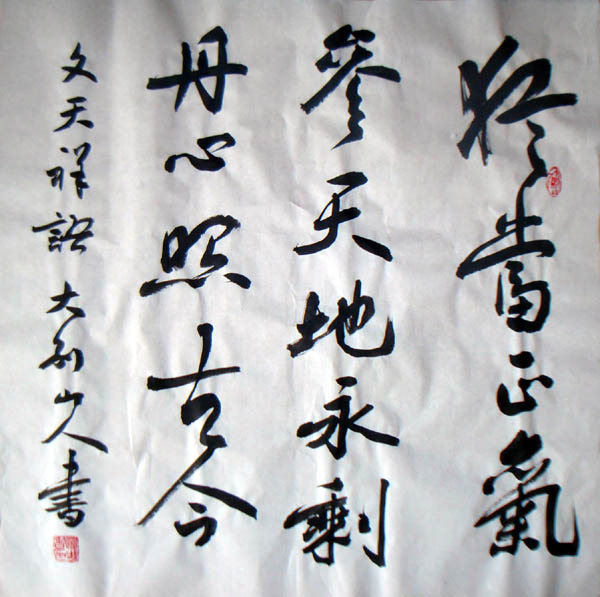 當正氣
參天地永剩
丹心照古今
文天祥語 大別山人書